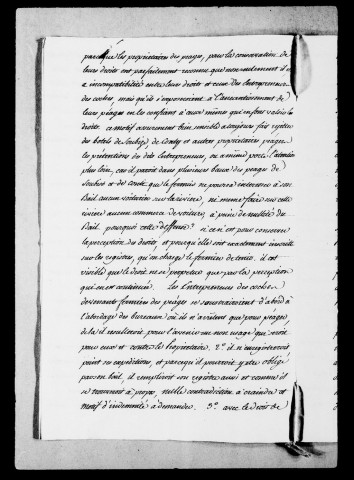 parceque les proprietaires des peages, pour la conservation de
leurs droits ont parfaitement reconnu que non seulement il y
a incompatibilité entre leurs droits et ceux des Entrepreneurs
des coches mais qu'ils s'exposeroient à l'aneantissement de
leurs péages en les confiant à ceux mêmes qui en font valoir les
droits. ce motif assurement bien sensible a toujours fait rejetter
des hotels de Soubise, de Conty et autres proprietaires peages
les prétentions des dits Entrepreneurs, on a même porté l'attention
plus loin, car il paroit dans plusieurs baux des peages de
Soubise et de Conty que le fermier ne pourra interesser à son
Bail aucun voiturier sur la riviere, ni même faire sur cette
riviere aucun commerce de voitures, à peine de nullité du
Bail. pourquoi cette deffense? si ce n'est pour conserver
la perception des droits et pourqu'elle soit exactement inscrite
sur les registres, qu'on charge le fermier de tenir. il est
visible que le droit ne se perpetue que par la perception
qui en est continuée. les Entrepreneurs des coches
devenants fermiers des péages se soustrairoient d'abord à
l'abordage des bureaux où ils n'arrêtent que pour péages
de là il resulteroit pour l'avenir un non usage qui seroit
pour eux et contre le Proprietaire. 2.° il n'enregistreroit
point ses expéditions, et parcequ'il pourroit y etre obligé
par son bail, il rempliroit son registre ainsi et comme il
se trouveroit à propos, nulle contradiction à craindre et
motif d'indemnité à demander. 3.° avec le droit de